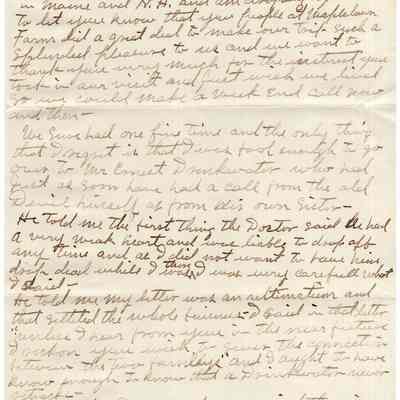 in Maine and N.H. and am
to let you know that you people at Mapletown
Farm did a great deal to make our trip such a
splendid pleasure to us and we want to
thank you very much for the interest you
took in our visit and just wish we lived
so we could make a week End call now
and then-
We sure had one fine time and the only thing
that I regret is that I was fool enough to go
over to Mr Ernest Drinkwater who had
just as soon have had a call from the old
Devil himself as from his own Sister-
He told me the first thing the Doctor said he had
a very weak heart and was liable to drop off
any time and as I did not want to have him
drop dead while I was there I was very careful what
I said-
He told me my letter was an ultimatum and
that settled the whole business- I said in that letter
"unless I hear from you in the near future
I reckon you wish to sever the connection
between the two families" and I aught to have
know enough to know that a Drinkwater never